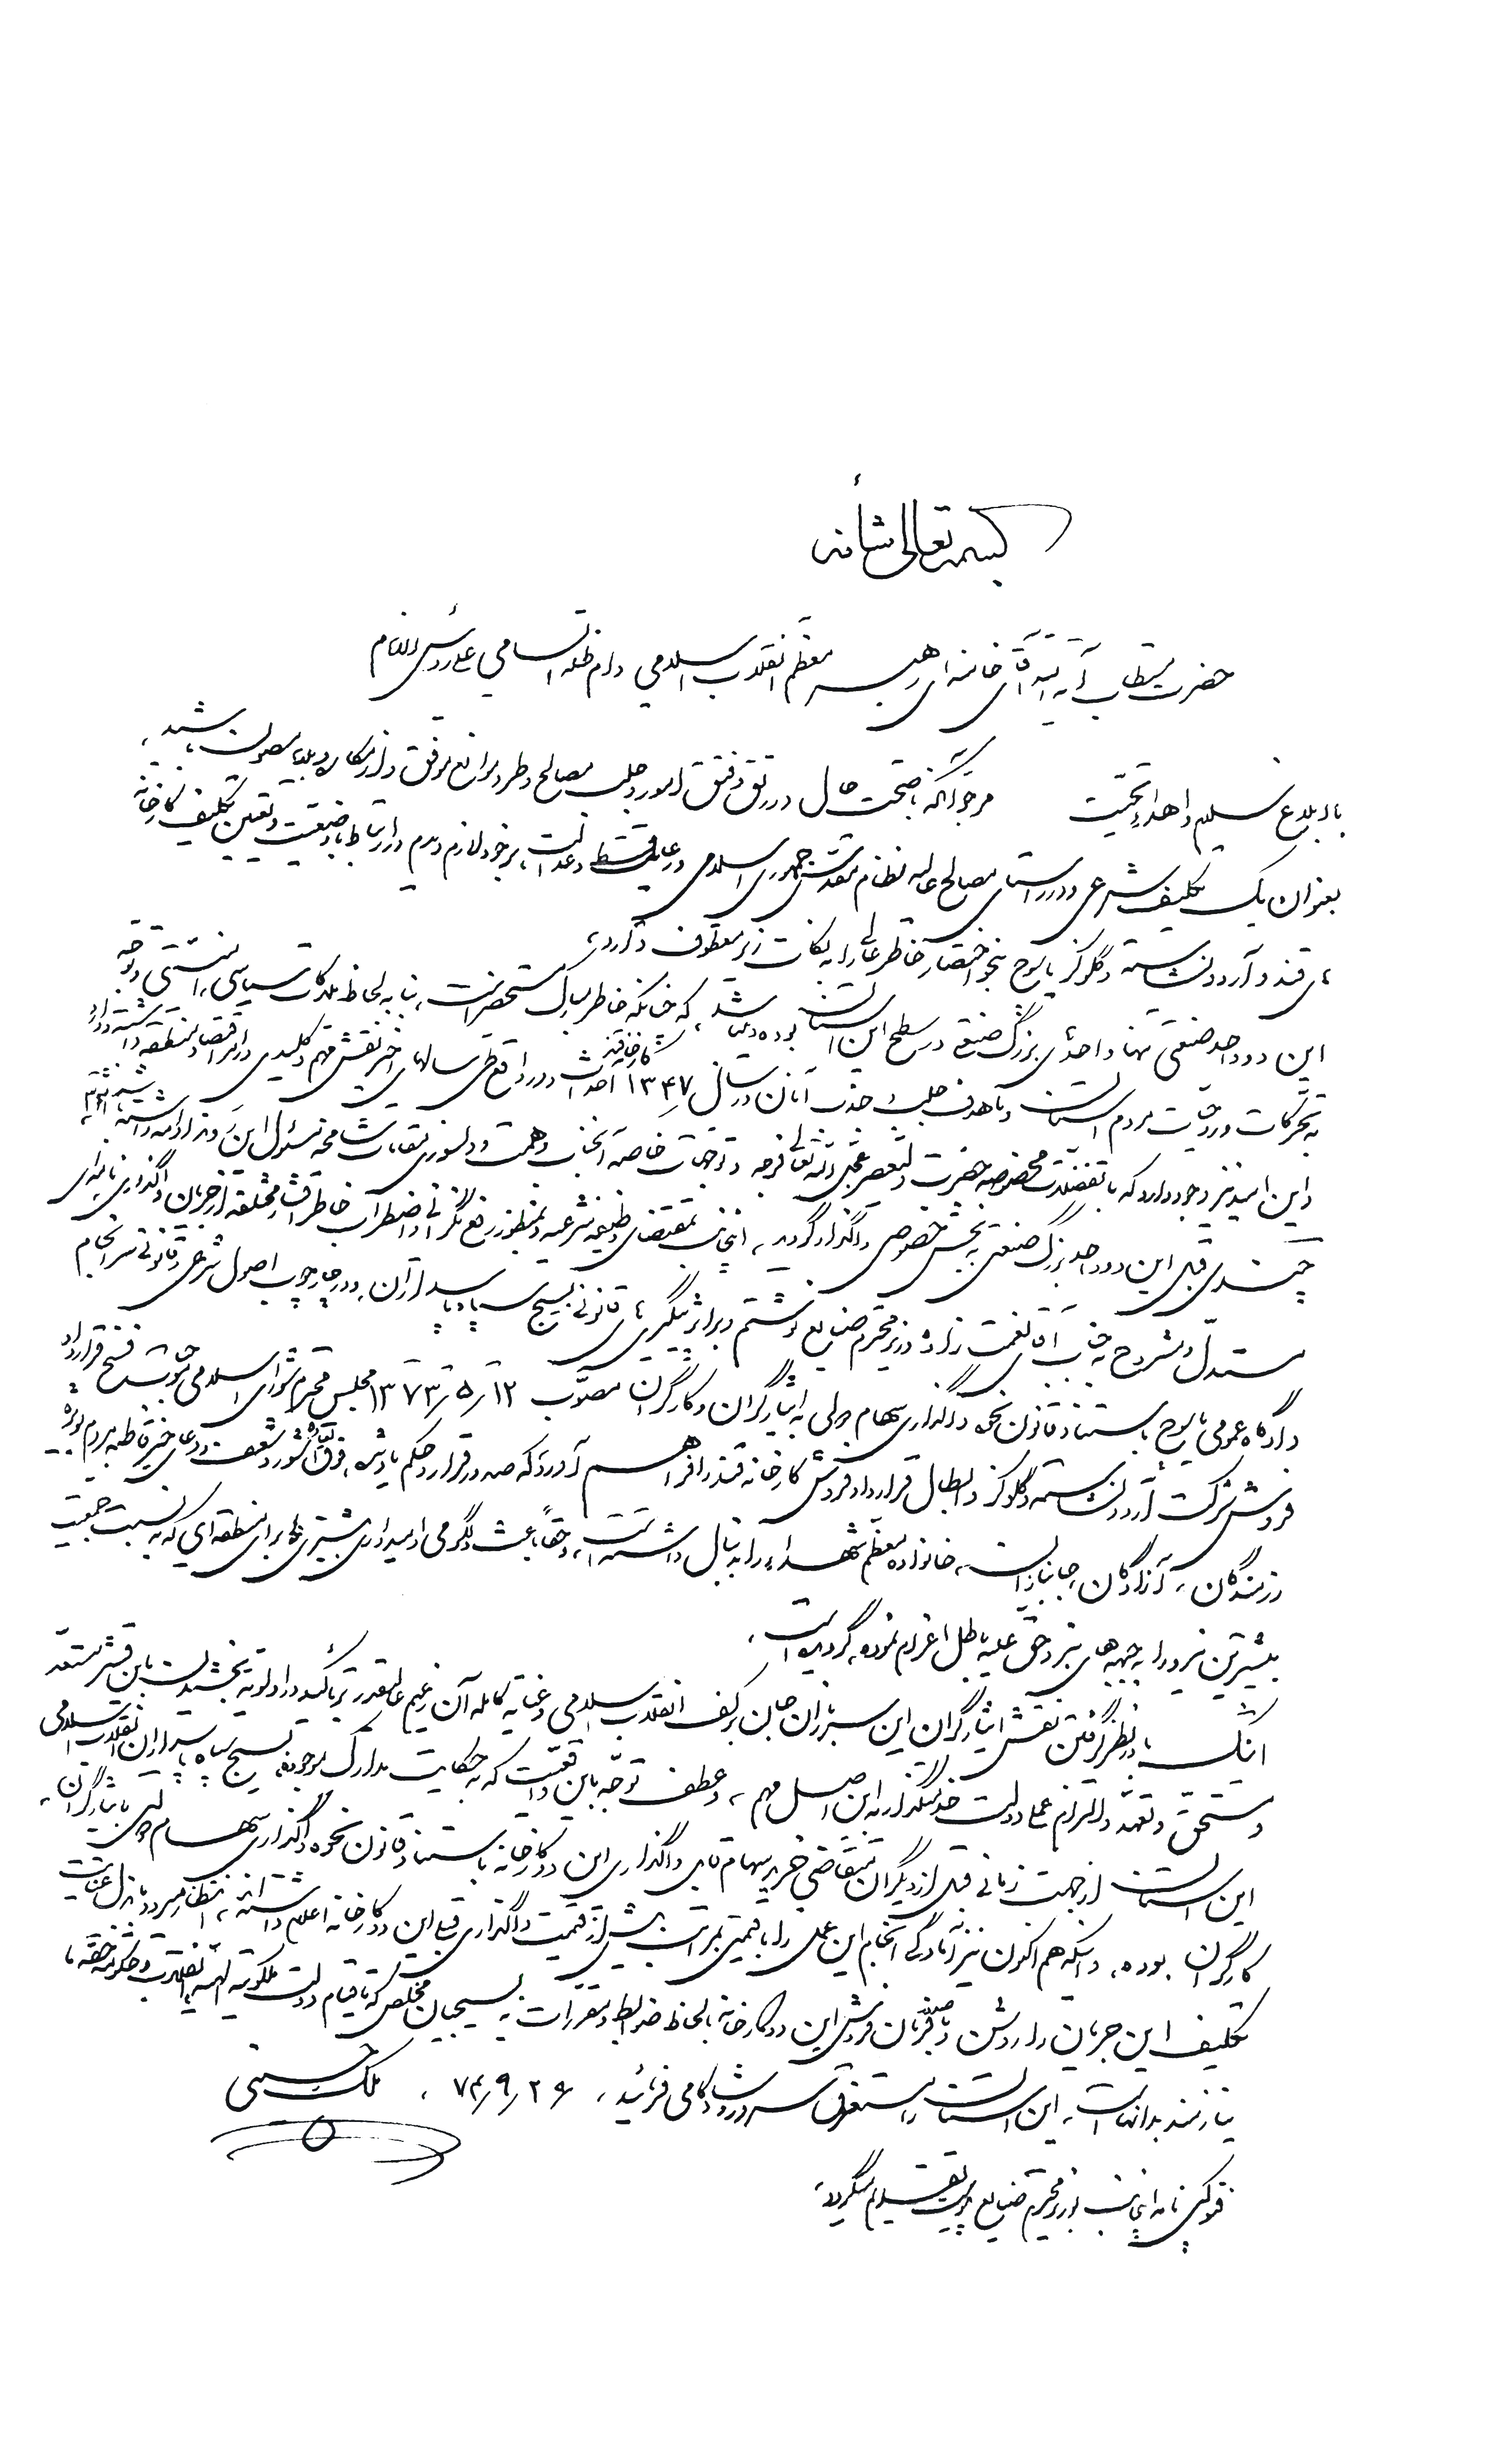 بسمه تعالی شأنه
حضرت مستطاب آیة الله آقای خامنه‌ای رهبر معظم انقلاب اسلامی دام ظله السامی علی رؤس الانام
با ابلاغ سلام و اهداء تحیت مرجو آنکه با صحت حال در رتق و فتق امور و جلب مصالح و طرد موانع موفق و از مکاره و بلایا مصون باشید،
بعنوان یک تکلیف شرعی و در راستای مصالح عالیه نظام مقدس جمهوری اسلامی و رعایت قسط و عدالت، برخود لازم دیدم در ارتباط با وضعیت و تعیین تکلیف کارخانه
های قند و آرد و نشاسته و گلوکز یاسوج بنحو اختصار خاطر عالی را به نکات زیر معطوف دارد،
این دو واحد صنعتی تنها واحدهای بزرگ صنعتی در سطح این استان بوده و میباشد، که چنانکه خاطر مبارک مستحضر است، بنا به لحاظ ملاکات سیاسی، امنیتی و توجه
به تحرکات و روحیات مردم استان و با هدف جلب و جذب آنان در سال ۱۳۴۷ کارخانه قند احداث و در واقع طی سالهای اخیر نقش مهم و کلیدی در امر اقتصاد منطقه داشته و دارد
و این امید نیز وجود دارد که با تفضلات مخصوصه حضرت ولیعصر عجل الله تعالی فرجه و توجهات خاصه آنجناب و همت و دلسوزی مقامات محترم مسئول این روند ادامه داشته باشد،
چندی قبل این دو واحد بزرگ صنعتی به بخش خصوصی واگذار گردید، اینجانب بمقتضای وظیفه شرعیه و بمنظور رفع نگرانی و اضطراب خاطر اقشار مختلفه از جریان واگذاری نامه‌ای
مستدل و مشروح به جناب آقای نعمت زاده وزیر محترم صنایع نوشتم و بر اثر پیگیری های قانونی بسیج سپاه پاسداران، و در چارچوب اصول شرعی و قانونی سرانجام
دادگاه عمومی یاسوج با استناد قانون نحوه واگذاری سهام دولتی به ایثارگران و کارگران مصوب ۱۳۷۳/۵/۱۲ مجلس محترم شورای اسلامی موجبات فسخ قرارداد
فروش شرکت آرد و نشاسته و گلوکز و ابطال قرارداد فروش کارخانه قند را فراهم آورد، که صدور قرار و حکم یاد شده، فوق العاده شور و شعف و دعای خیر قاطبه مردم بویژه
رزمندگان، آزادگان، جانبازان، خانواده معظم شهداء را به دنبال داشته است، و حقاً باعث دلگرمی و امیدواری بیشتری برای منطقه ای که به نسبت جمعیت
بیشترین نیرو را به جبهه های نبرد حق علیه باطل اعزام نموده، گردیده است،
اینک با در نظر گرفتن نقش ایثارگران این سربازان جان بر کف انقلاب اسلامی و عنایه کامله آن زعیم عالیقدر بر تأکید و اولویه بخشیدن باین قشر متعهد
و مستحق و تعهد و التزام عملی دولت خدمتگذار به این اصل مهم، و عطف توجه باین واقعیت که به حکایت مدارک موجوده، بسیج سپاه پاسداران انقلاب اسلامی
این استان از جهت زمانی قبل از دیگران متقاضی خرید سهام قابل واگذاری این دو کارخانه با استناد قانون نحوه واگذاری سهام دولتی به ایثارگران،
کارگران بوده، و اینکه هم اکنون نیز آمادگی انجام این عمل را با قیمتی بمراتب بیش از قیمت واگذاری قبلی این دو کارخانه اعلام داشته اند، انتظار میرود با بذل عنایت
تکلیف این جریان را روشن و با صدور فرمان فروش این دو کارخانه با لحاظ ضوابط و مقررات به بسیجیان مخلص که تا قیام دولت ملکوتیه الهیه انقلاب و حکومت حقه ما
نیازمند بدانهاست، این استان را مستغرق سرور و شادکامی فرمائید، ۷۴/۹/۲۶، ملک حسینی
فتوکپی نامه اینجانب به وزیر محترم صنایع به پیوست تقدیم میگردد،